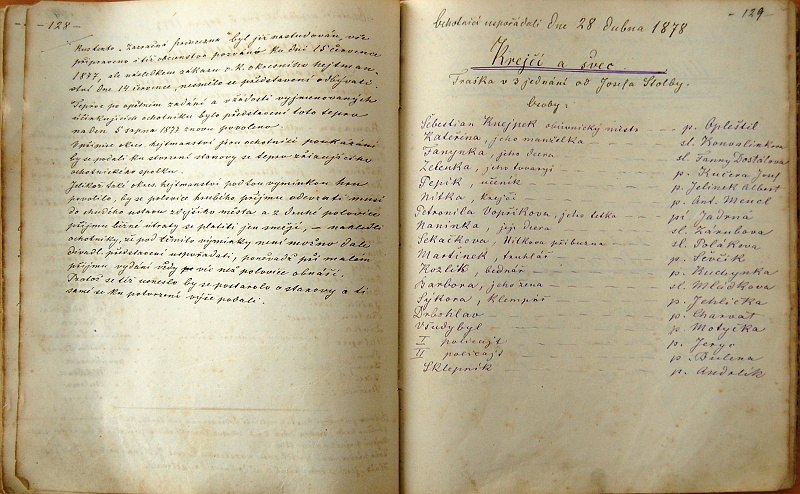 - 128 -
Kus tento „Zazračná princezna" byl již nastudován, vše
připraveno i též obecenstvo pozváno ku dni 15 července
1877, ale následkem zákazu c. k. okresního hejtman-
ství dne 14 července, nesmělo se představení odbývati.
Teprve po opětném zadání a žádosti vyjmenovaných
účinkujících ochotníků bylo představení toto teprve
na den 5 srpna 1877 znovu povoleno.
okres. hejtmanství jsou ochotníci poukázáni
by se podali ku stvrzení stanovy se teprv zřizujícího
ochotnického spolku.
Jelikož také okres. hejtmanství pod tou vymínkou hru
povolilo, by se polovice hrubého příjmu odevzdati musí
do chudého ústavu zdejšího města a z druhé polovice
příjmu běžné útraty se platiti jen smějí, – nahlédli
ochotníky, že pod těmito vymínky není možno dále
divadl. představení uspořádati, poněvadž při malém
příjmu vydání vždy více než polovice obnáší.
Pročež se též usneslo by se postaralo o stanovy a ti
samé se ku potvrzení výše podali.
- 129 -
Ochotníci uspořádali dne 28 dubna 1878
Krejčí a švec
Fraška v 3 jednání od Josefa Štolby.
Osoby:
Šebestian Knejpek obuvnický mistr - - p. Opleštil
Kateřina, jeho manželka - - sl. Konvalinkova
Fanynka, jeho dcera - - sl. Fanny Dostalova
Zelenka, jeho tovaryš - - p. Kučera Josef
Pepík, učeník - - p. Jelínek Albert
Nitka, krejčí - - p. Ant. Mencl
Petronila Vopičkova, jeho tetka - - pí Jadrná
Naninka, její dcera - - sl. Zárubova
Sekáčkova, Nitkova příbuzna - - sl. Polákova
Martinek, truhlář - - p. Ševčík
Kozlík, bednář - - p. Kuchynka
Barbora, jeho žena - - sl. Mládkova
Sýkora, klempíř - - p. Jehlička
Drbohlav - - p. Charvát
Všudybyl - - p. Motyčka
I policajt - - p. Jergo
II policajt - - p. Bulena
Sklepník - - p. Andrlík